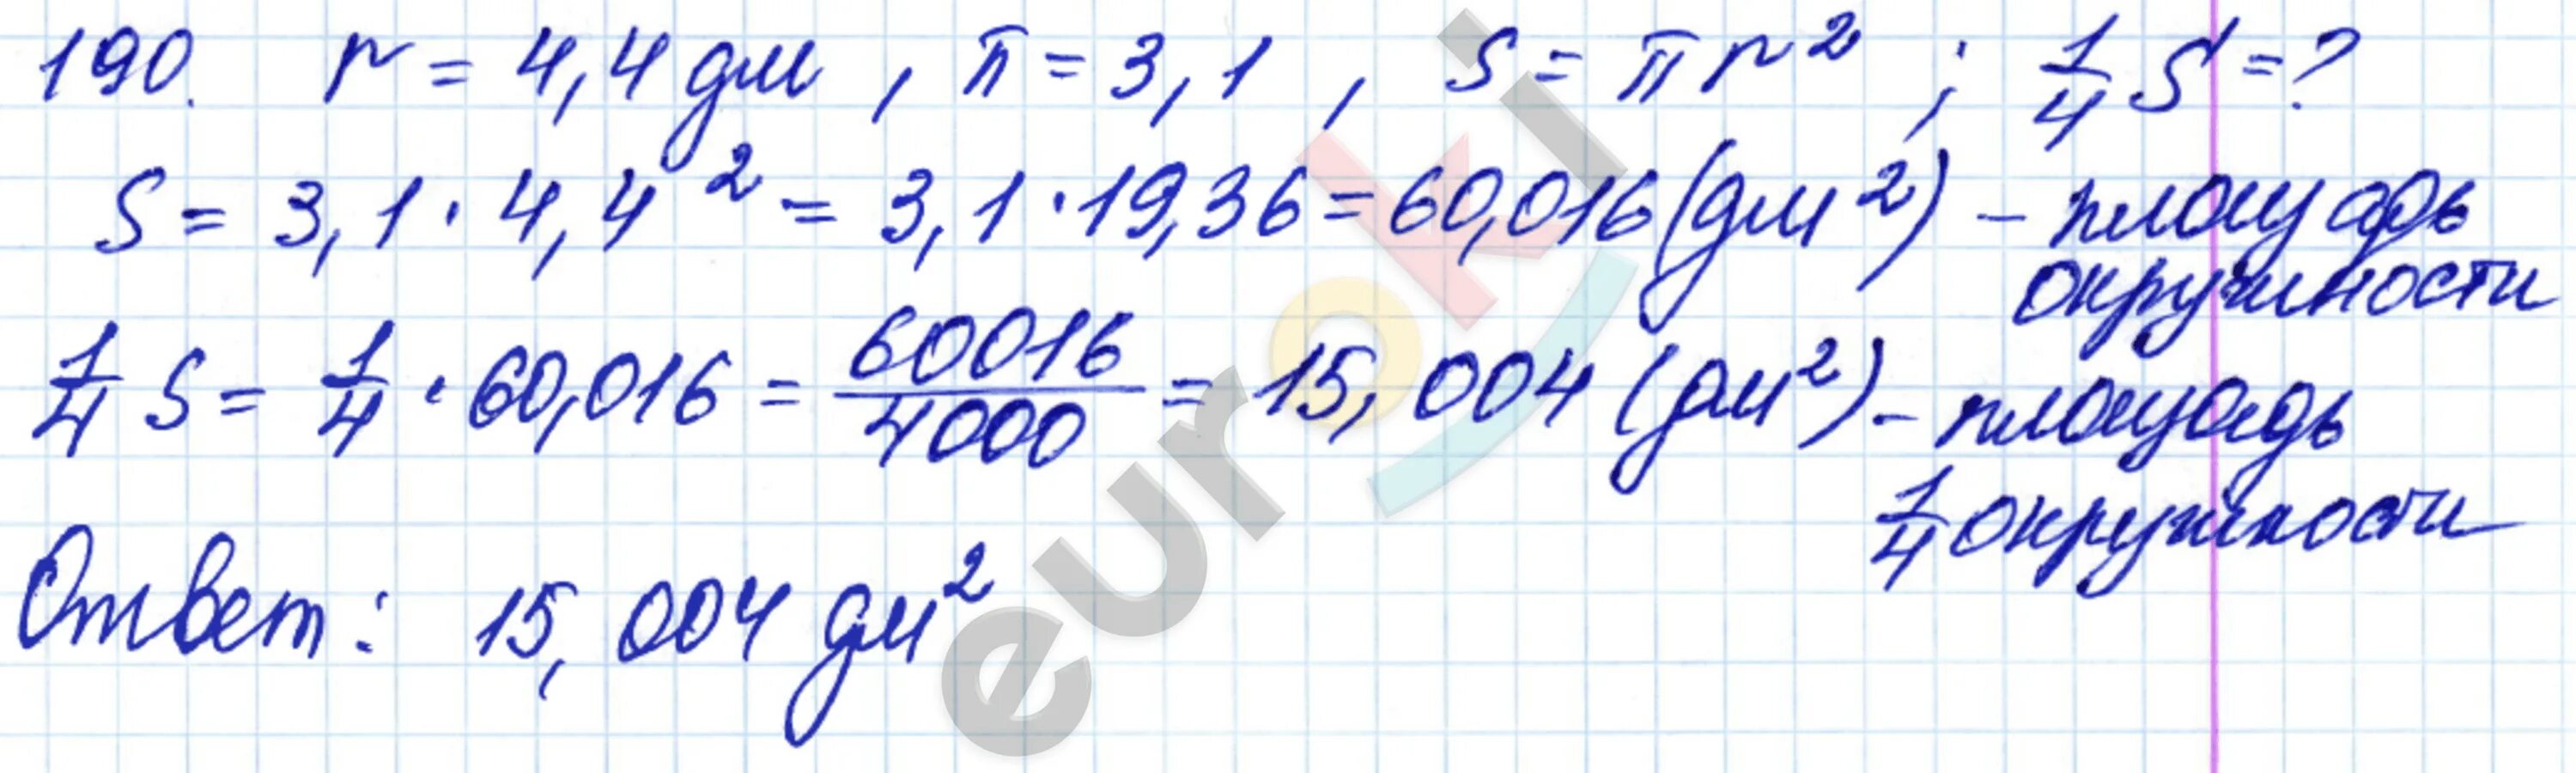 190. r = 4,4 дм , π = 3,1 , S = πr² ; 1/4 S = ?
S = 3,1 · 4,4² = 3,1 · 19,36 = 60,016 (дм²) – площадь
окружности
1/4 S = 1/4 · 60,016 = 60016/4000 = 15,004 (дм²) – площадь
1/4 окружности
Ответ: 15,004 дм²
euroki